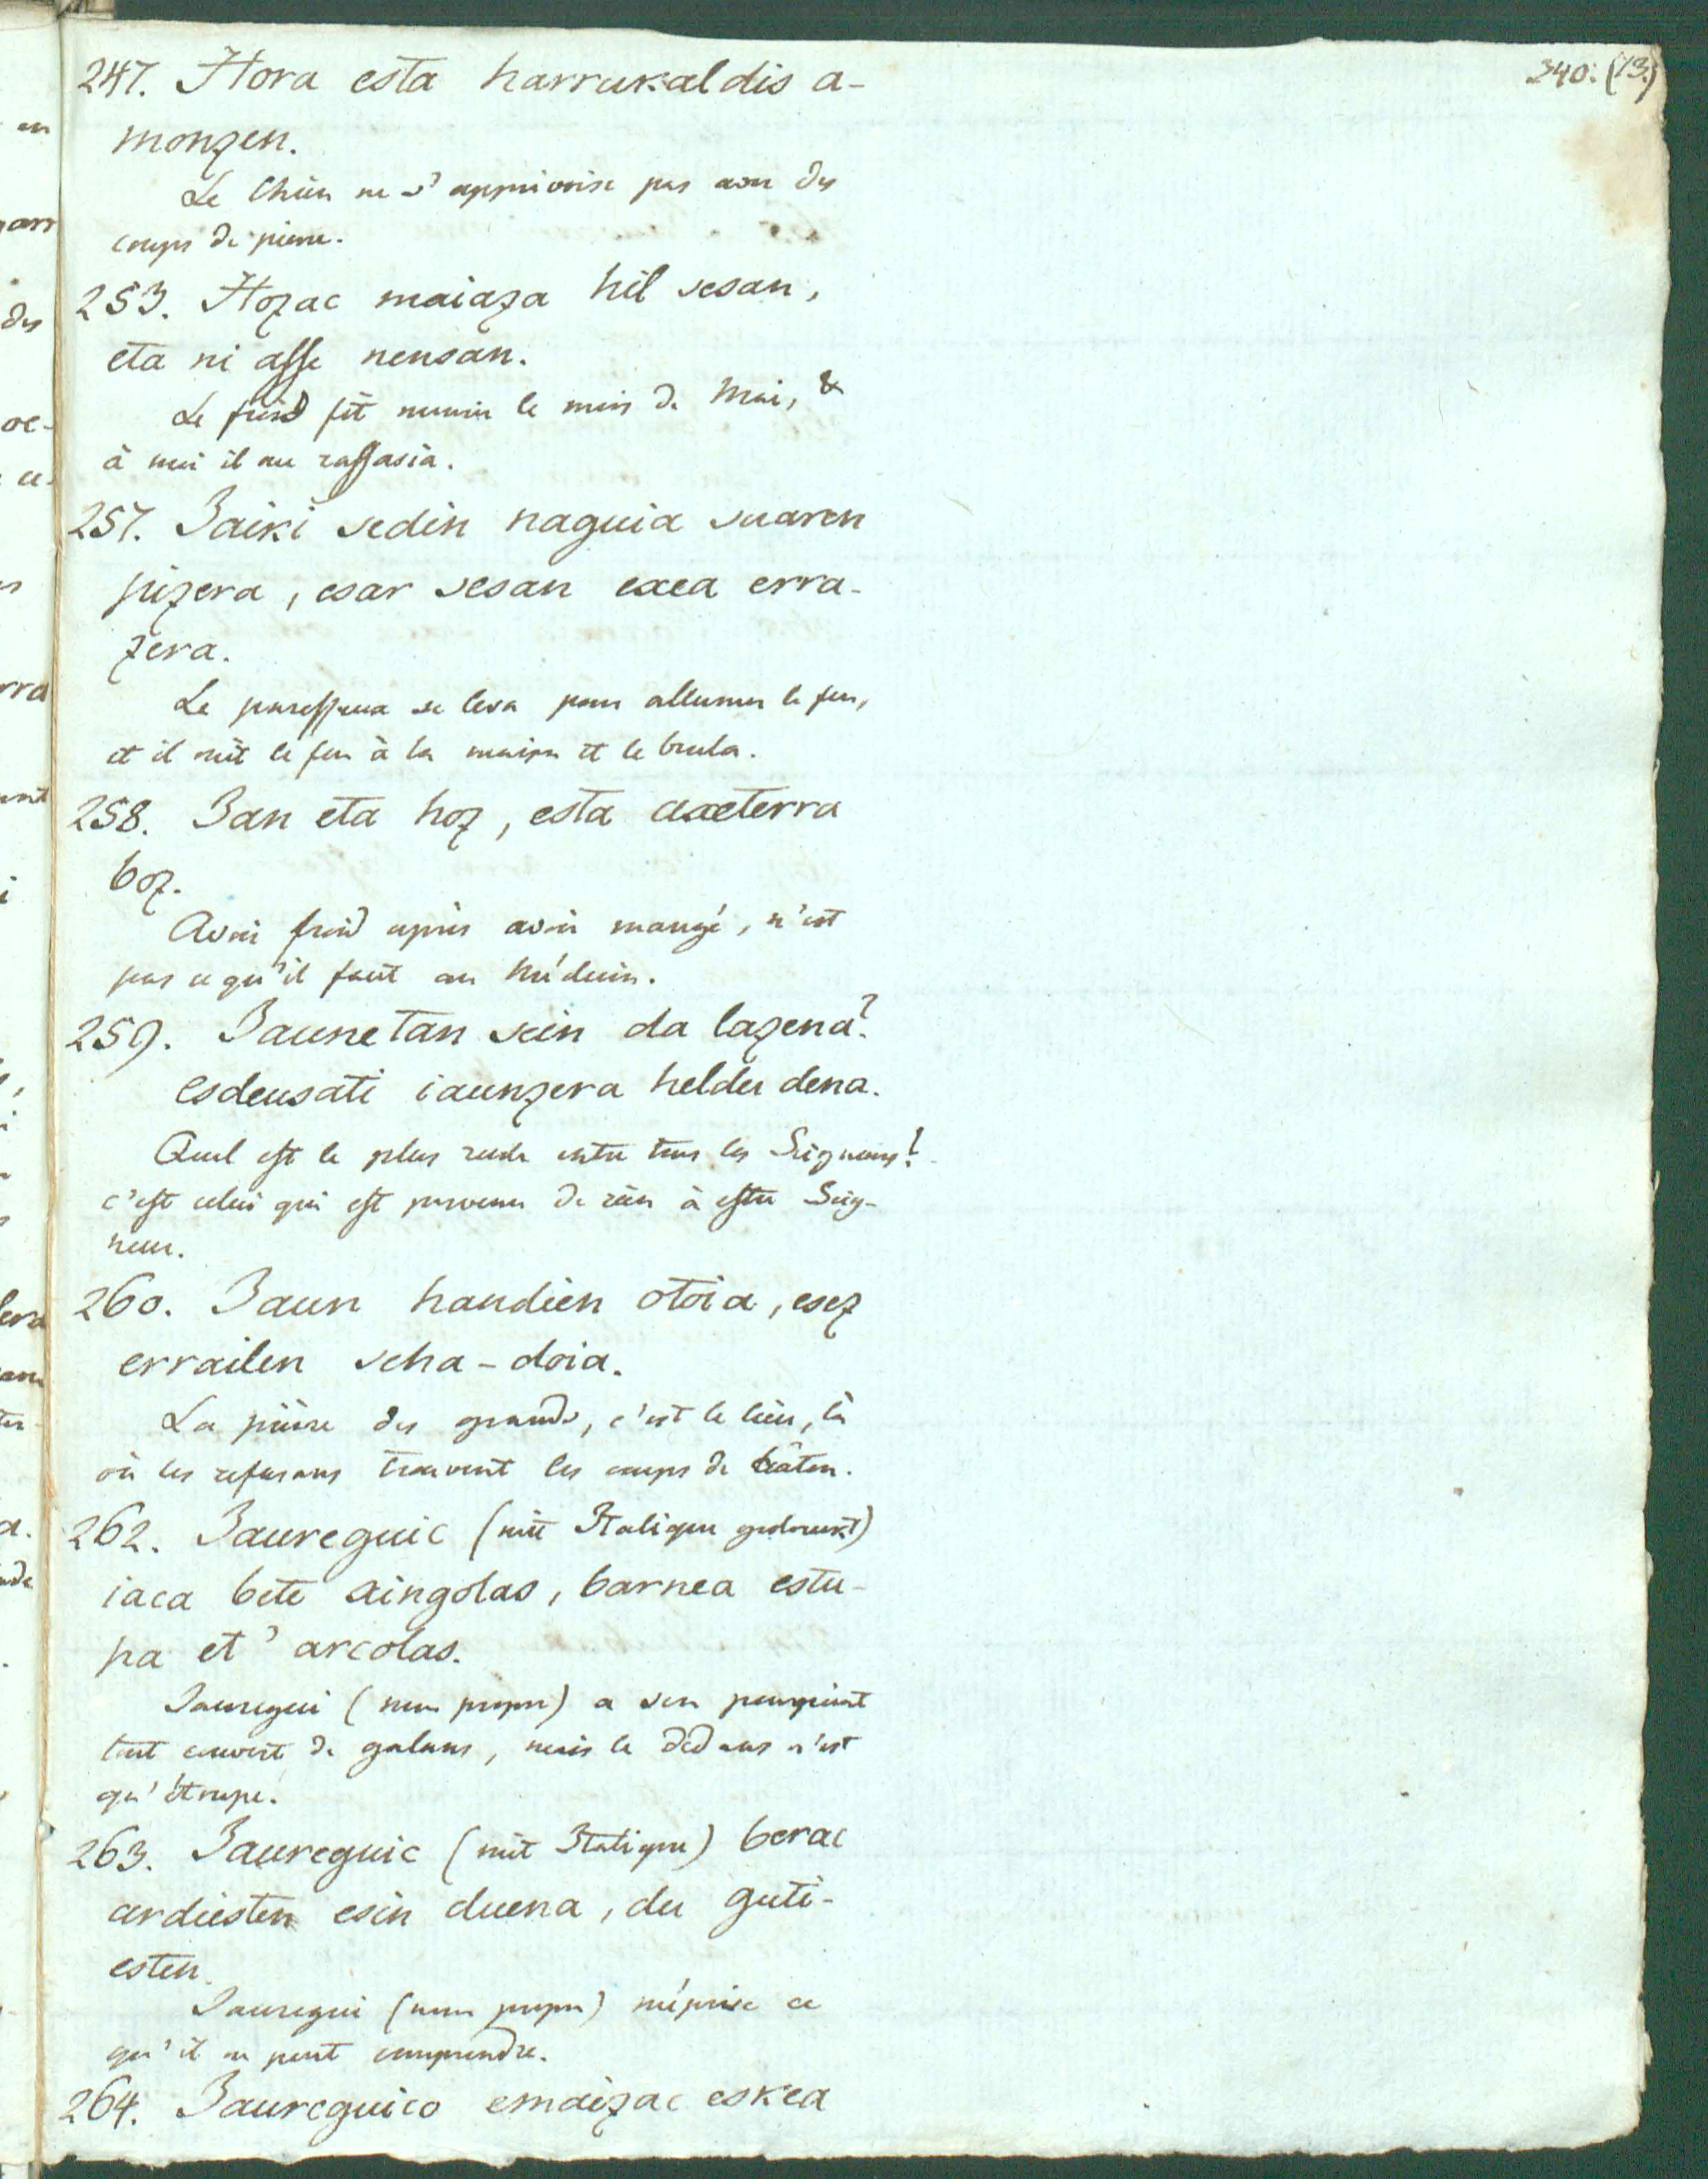 340. (13.)
247. Hora esta harrukaldis a-
monzen.
Le Chien ne s'apprivoise pas avec des
coups de pierre.
253. Hozac maiaza hil sesan,
eta ni asse nensan.
Le froid fit mourir le mois de Mai, &
à moi il me rassasia.
257. Jaiki sedin naguia suaren
pizera, esar sesan exea erra-
zera.
Le paresseux se leva pour allumer le feu,
et il mit le feu à la maison et le brula.
258. Jan eta hoz, esta axeterra
boz.
Avoir froid après avoir mangé, n'est
pas ce qu'il faut au Médecin.
259. Jaunetan sein da lazena?
esdeusati iaunzera heldu dena.
Quel est le plus rude entre tous les Seigneurs?
c'est celui qui est parvenu de rien à estre Seig-
neur.
260. Jaun handien otoia, esez
errailen scha-doia.
La prière des grands, c'est le lieu, là
où les refusans trouvent les coups de bâton.
262. Jaureguic (mit Italique gedruckt)
iaca bete singolas, barnea estu-
pa et' arcolas.
Jauregui (nom propre) a son pourpoint
tout couvert de galons, mais le dedans n'est
qu'étoupe.
263. Jaureguic (mit Italique) berac
ardiesten esin duena, du guti-
esten.
Jauregui (nom propre) méprise ce
qu'il ne peut comprendre.
264. Jaureguico emaizac eskea